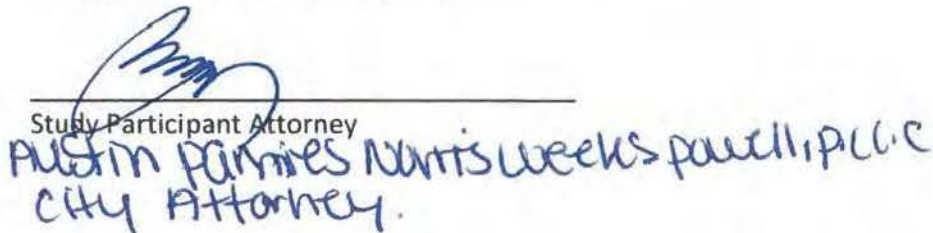 Study Participant Attorney
Austin Pamies Norris Weeks Powell, PLLC
City Attorney.